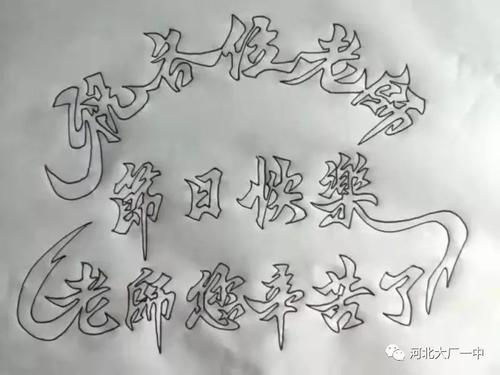 祝各位老師
節日快樂
老師您辛苦了
河北大厂一中